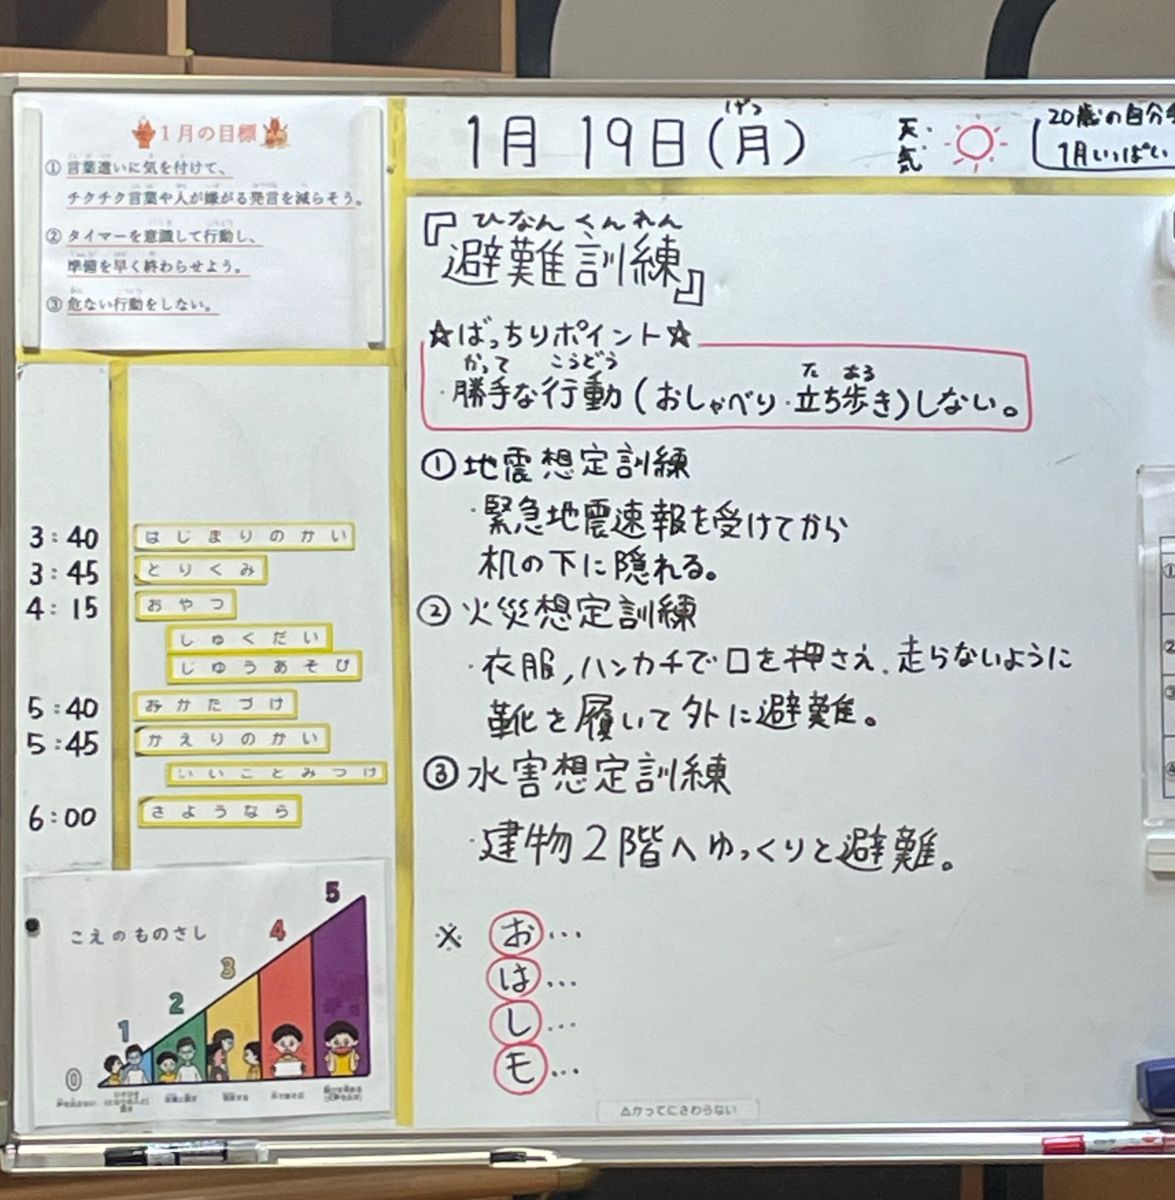 1月の目標
① 言葉遣いに気を付けて、
チクチク言葉や人が嫌がる発言を減らそう。
② タイマーを意識して行動し、
準備を早く終わらせよう。
③ 危ない行動をしない。
1月 19日(月)
げつ
天気:
20歳の自分
1月いっぱい
ひなん くんれん
『避難訓練』
☆ばっちりポイント☆
かって こうどう た ある
・勝手な行動(おしゃべり・立ち歩き)しない。
①地震想定訓練
・緊急地震速報を受けてから
机の下に隠れる。
②火災想定訓練
・衣服,ハンカチで口を押さえ、走らないように
靴を履いて外に避難。
③水害想定訓練
・建物2階へゆっくりと避難。
※ お…
は…
し…
も…
3:40 はじまりのかい
3:45 とりくみ
4:15 おやつ
しゅくだい
じゆうあそび
5:40 おかたづけ
5:45 かえりのかい
いいことみつけ
6:00 さようなら
こえのものさし
0 1 2 3 4 5
⚠かってにさわらない
①
②
③
④